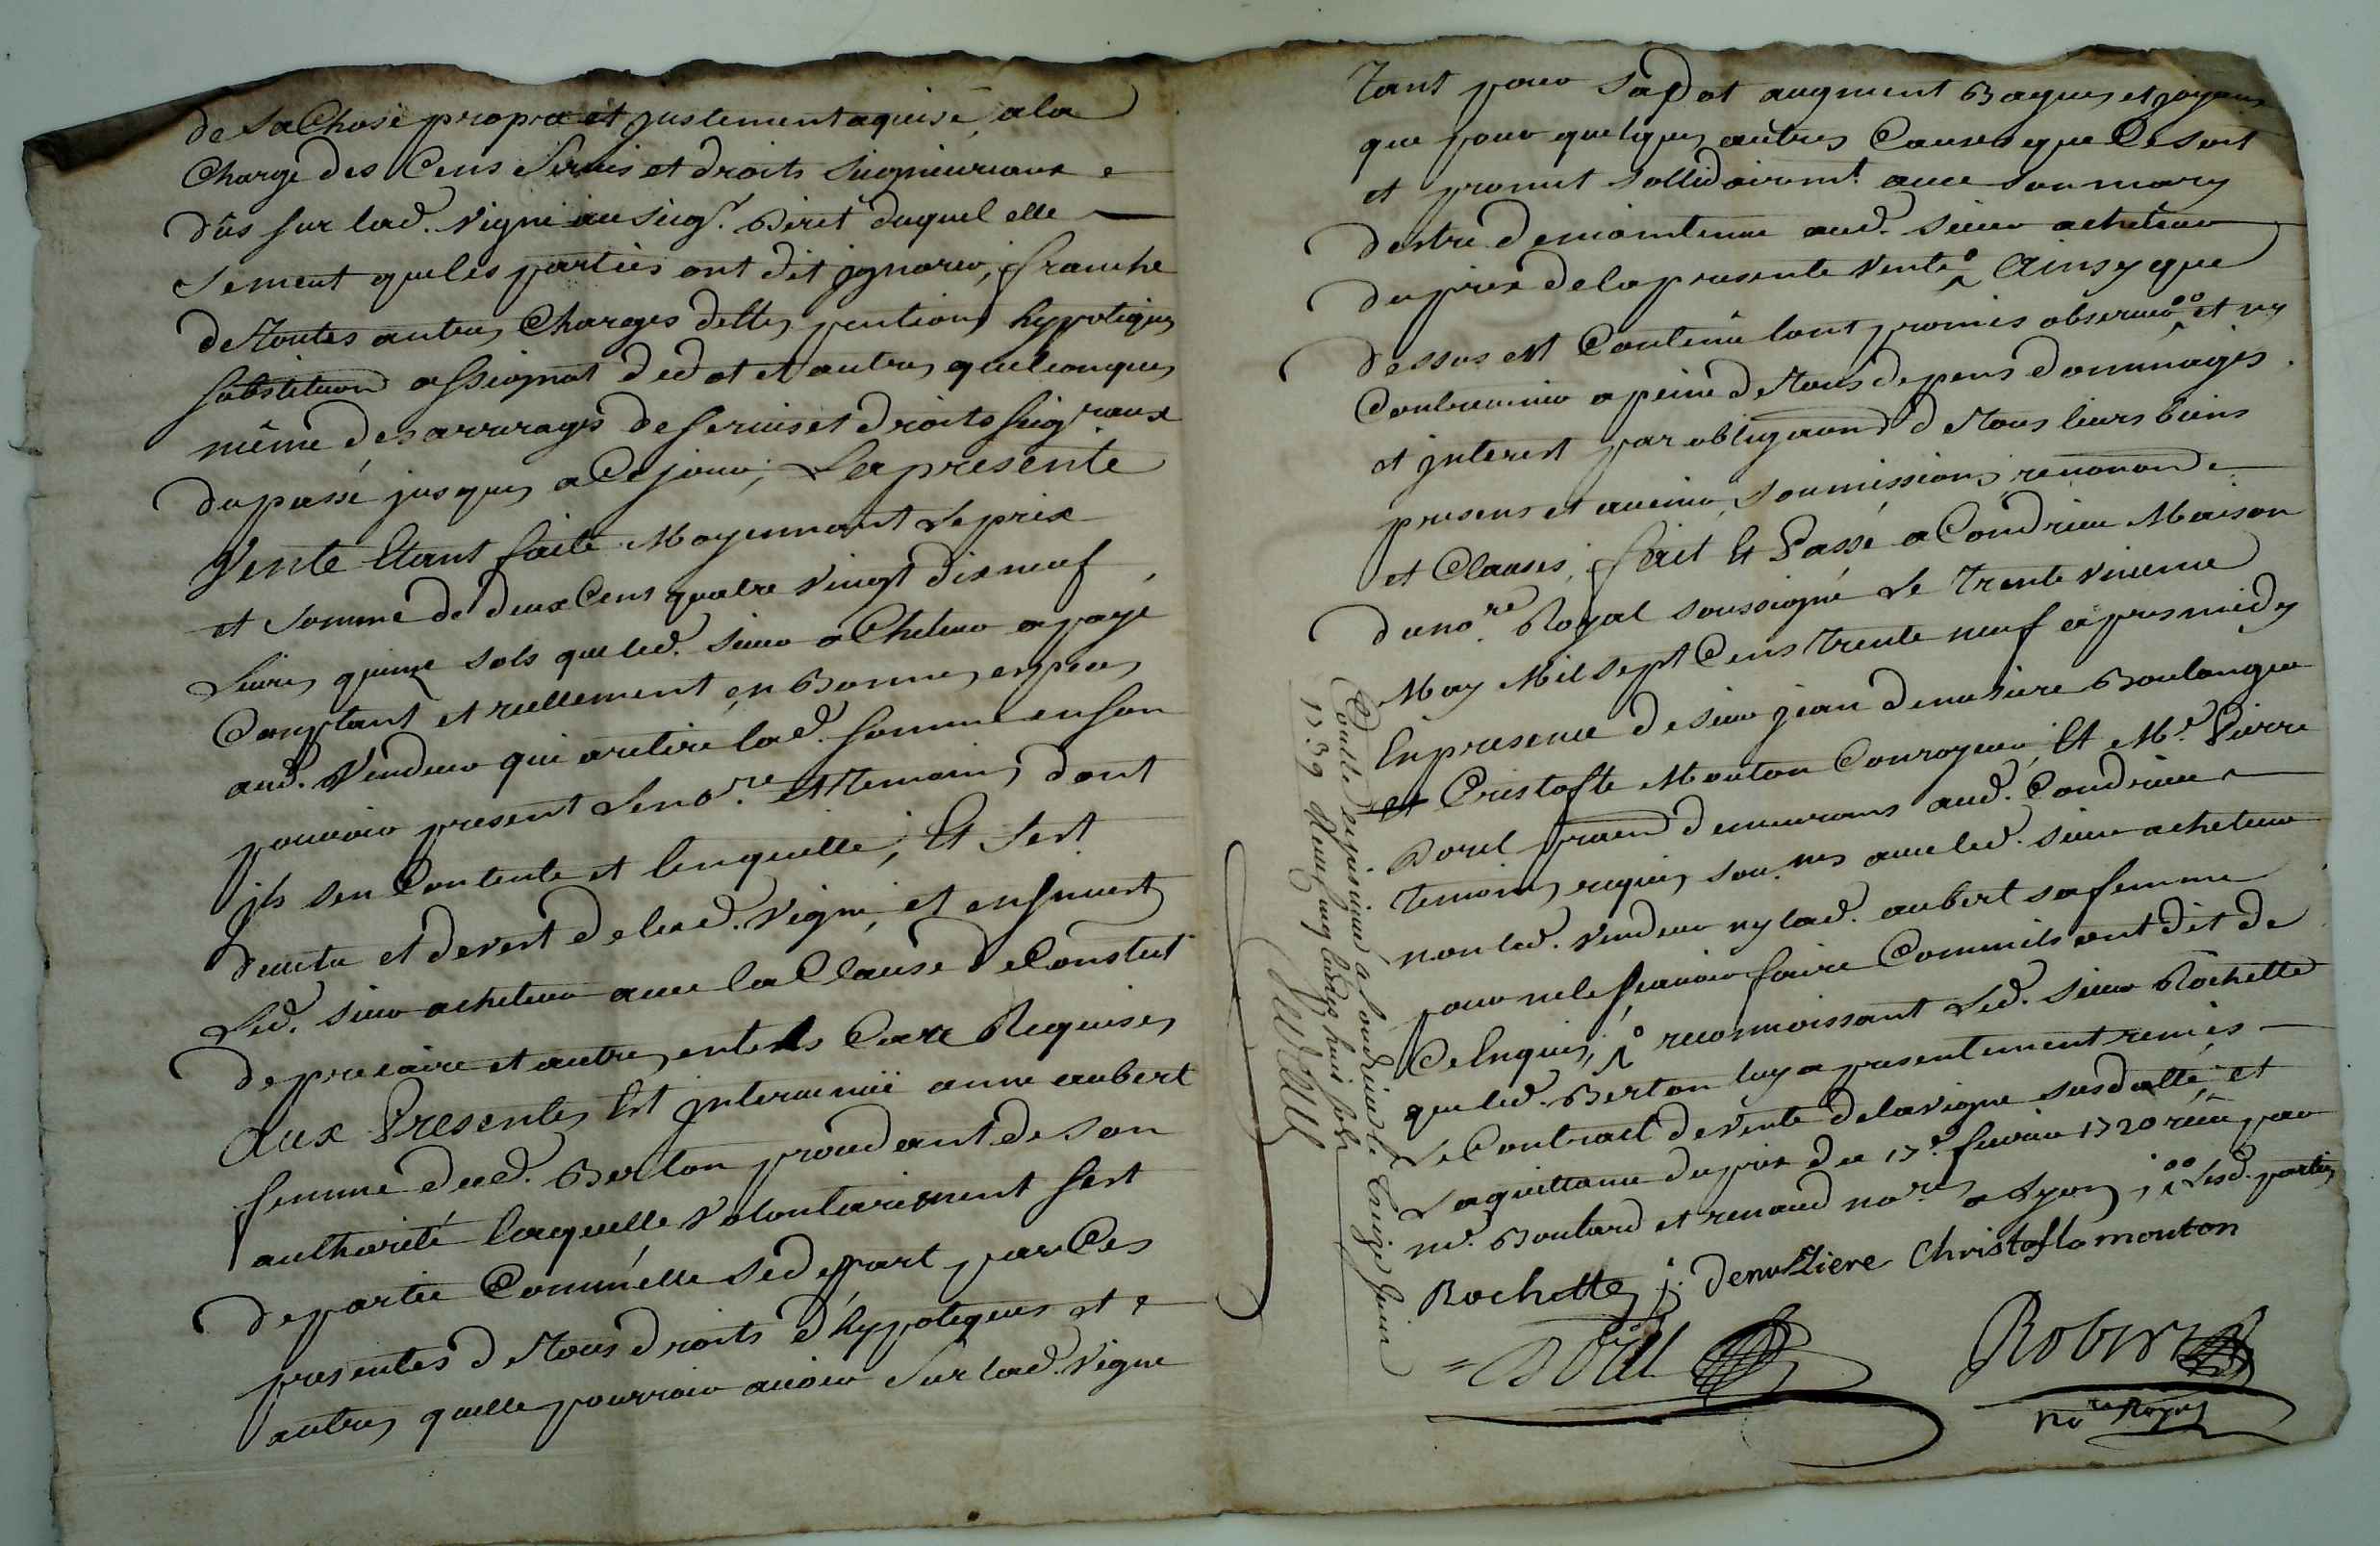 de sa Chose propre et justement aquise, a la
Charge des Cens servis et droits seigneuriaux
dûs sur lad. vigne au seigr. Biret duquel elle
se ment que les parties ont dit jgnorer, franche
de toutes autres Charges dettes pentions hypotiques
substituon assignat de dot et autres quelconques
même des arrerages de servis et droits seigriaux
du passé jusques a Ce jour; La presente
Vente Etant faite Moyennant Le prix
et somme de deux Cens quatre vingt dix neuf
Livres quinze sols que led. sieur acheteur a payé
Comptant et reellement en Bonnes especes
aud. Vendeur qui a retiré lad. somme en son
pouvoir present Le nore. et temoins, dont
jls sen Contente et lenquitte; Et sest
demtu et devest de lad. vigne, et en jnvest
Led. sieur acheteur avec la Clause de Constitut
de precaire et autres en tels Cas Requises
Aux Presentes Est jntervenüe anne aubert
femme dud. Berton procedant de son
authorité laquelle volontairement sest
departie Comm'elle se depart par Ces
presentes de tous droits d'hypoteques et
autres quelle pourroir avoir sur lad. vigne
tant pour sa dot augment Bagues et joyaux
que pour quelques autres Causes que Ce soit
et promet sollidairemt. avec son mary
destre de maintenue aud. sieur acheteur
du prix de la presente vente ° Ainsy que
dessus est Contenu lont promis observer °° et ny
Contrevenir a peine de tous depens dommages
et jnterest par obligaon de tous leurs biens
presens et avenir, soumissions, renonon
et Clauses, fait Et Passé a Condrieu Maison
du nore. Royal soussigné Le trente unieme
May Mil sept Cens trente neuf apres midy
En presence de sieur jean Demusiere Boulanger
et Cristofle Mouton Conroyeur, Et Me. Pierre
Borel praen demeurans aud. Condrieu
temoins requis sou.nes avec led. sieur acheteur
non led. vendeur ny lad. aubert sa femme
pour ne le sçavoir faire Comm'ils ont dit de
Ce Enquis; ° reconnoissant Led. sieur Rochette
que led. Berton luy a presentement remis
Le Contract de vente de la vigne susdatté, et
La quittance du prix du 17e. fevrier 1720 reçu par
me. Boutard et renaud nores a Lyon; °° Lesd. parties
Rochette j. demuziere Christofla mouton
Borel Robert
nore Royal
Contlé et jnsinué a Condrieu le treize juin
1739 Reçu